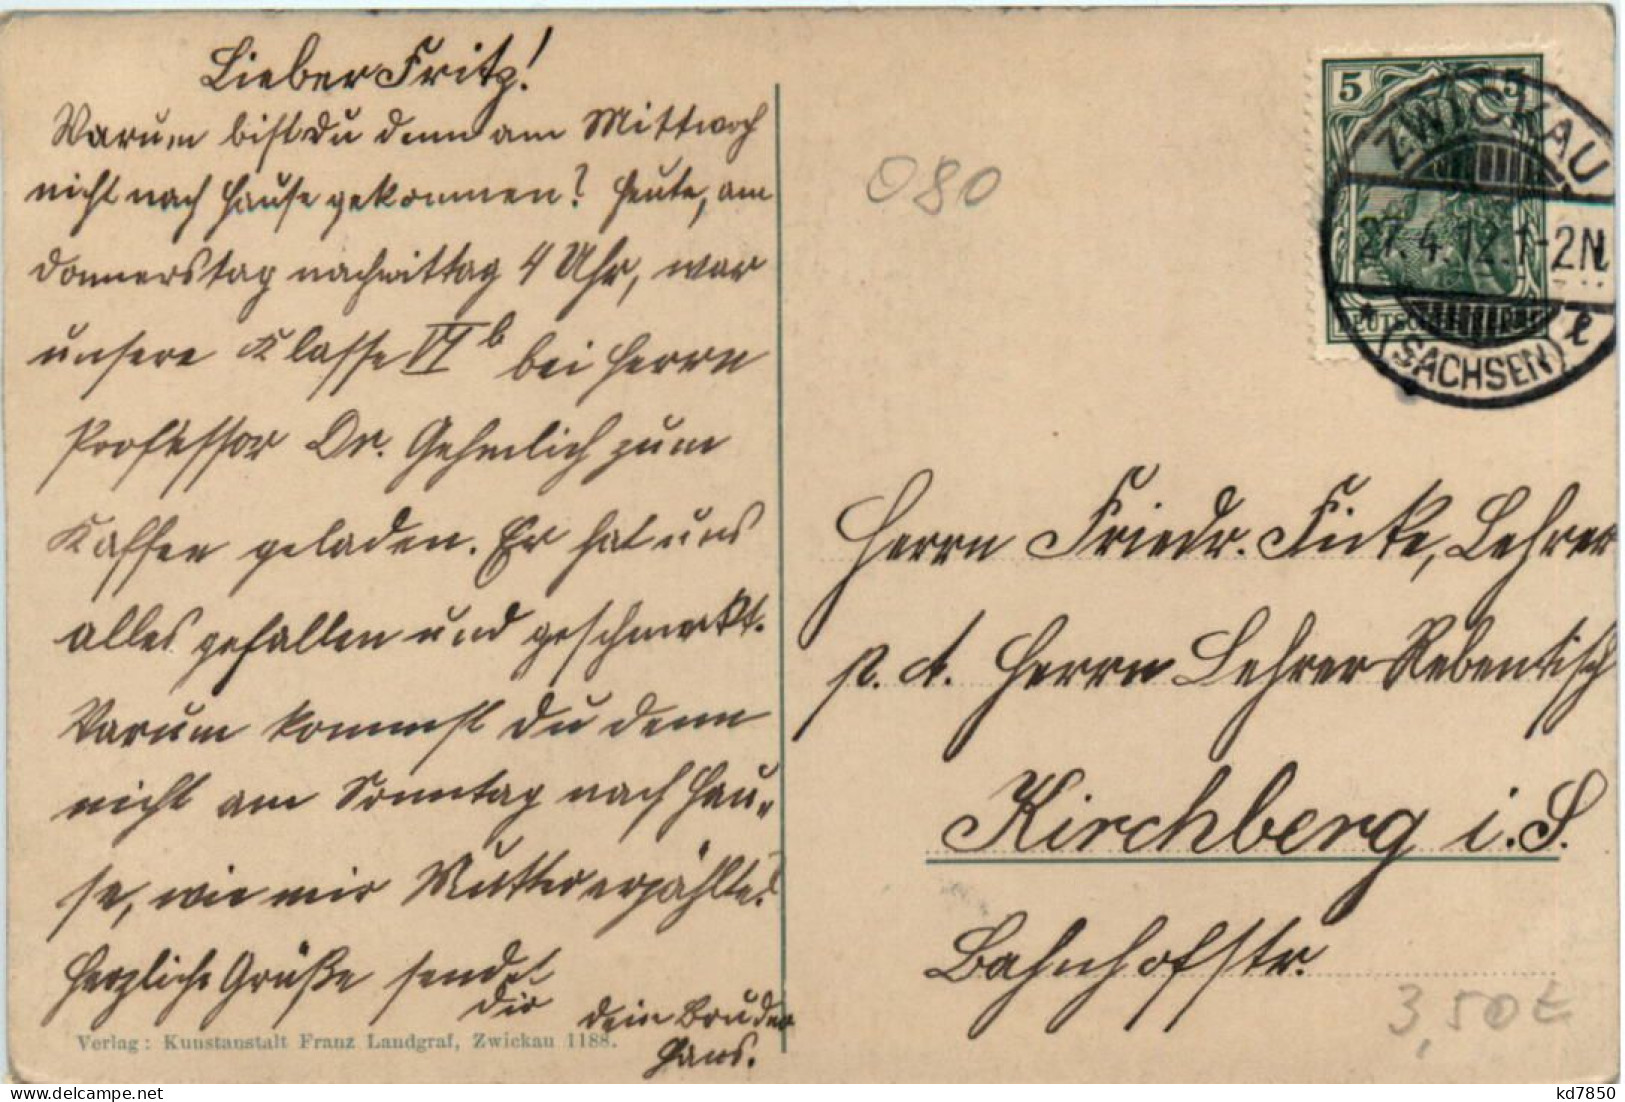 Lieber Fritz!
Warum bist du denn am Mittwoch
nicht nach Hause gekommen? Heute, am
Donnerstag nachmittag 4 Uhr, war
unsere Klasse VI b bei Herrn
Professor Dr. Gehmlich zum
Kaffee geladen. Er hat uns
alles gefallen und geschmeckt.
Warum kommst du denn
nicht am Sonntag nach Hau-
se, wie mir Mutter erzählte?
Herzliche Grüße sendet
Dir dein Bruder
Hans.
Verlag: Kunstanstalt Franz Landgraf, Zwickau 1188.
080
5 5
ZWICKAU
27.4.12.1-2N.
* (SACHSEN) l
Herrn Friedr. Ficke, Lehrer
p. A. Herrn Lehrer Rebentisch
Kirchberg i. S.
Bahnhofstr.
3,50 €
kd7850